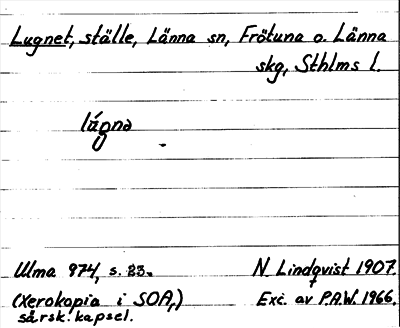 Lugnet, ställe, Länna sn, Frötuna o. Länna
skg, Sthlms l.
lúgnə
Ulma 974, s. 23.
N. Lindqvist 1907.
(Xerokopia i SOA,)
särsk. kapsel.
Exc. av P.A.W. 1966.